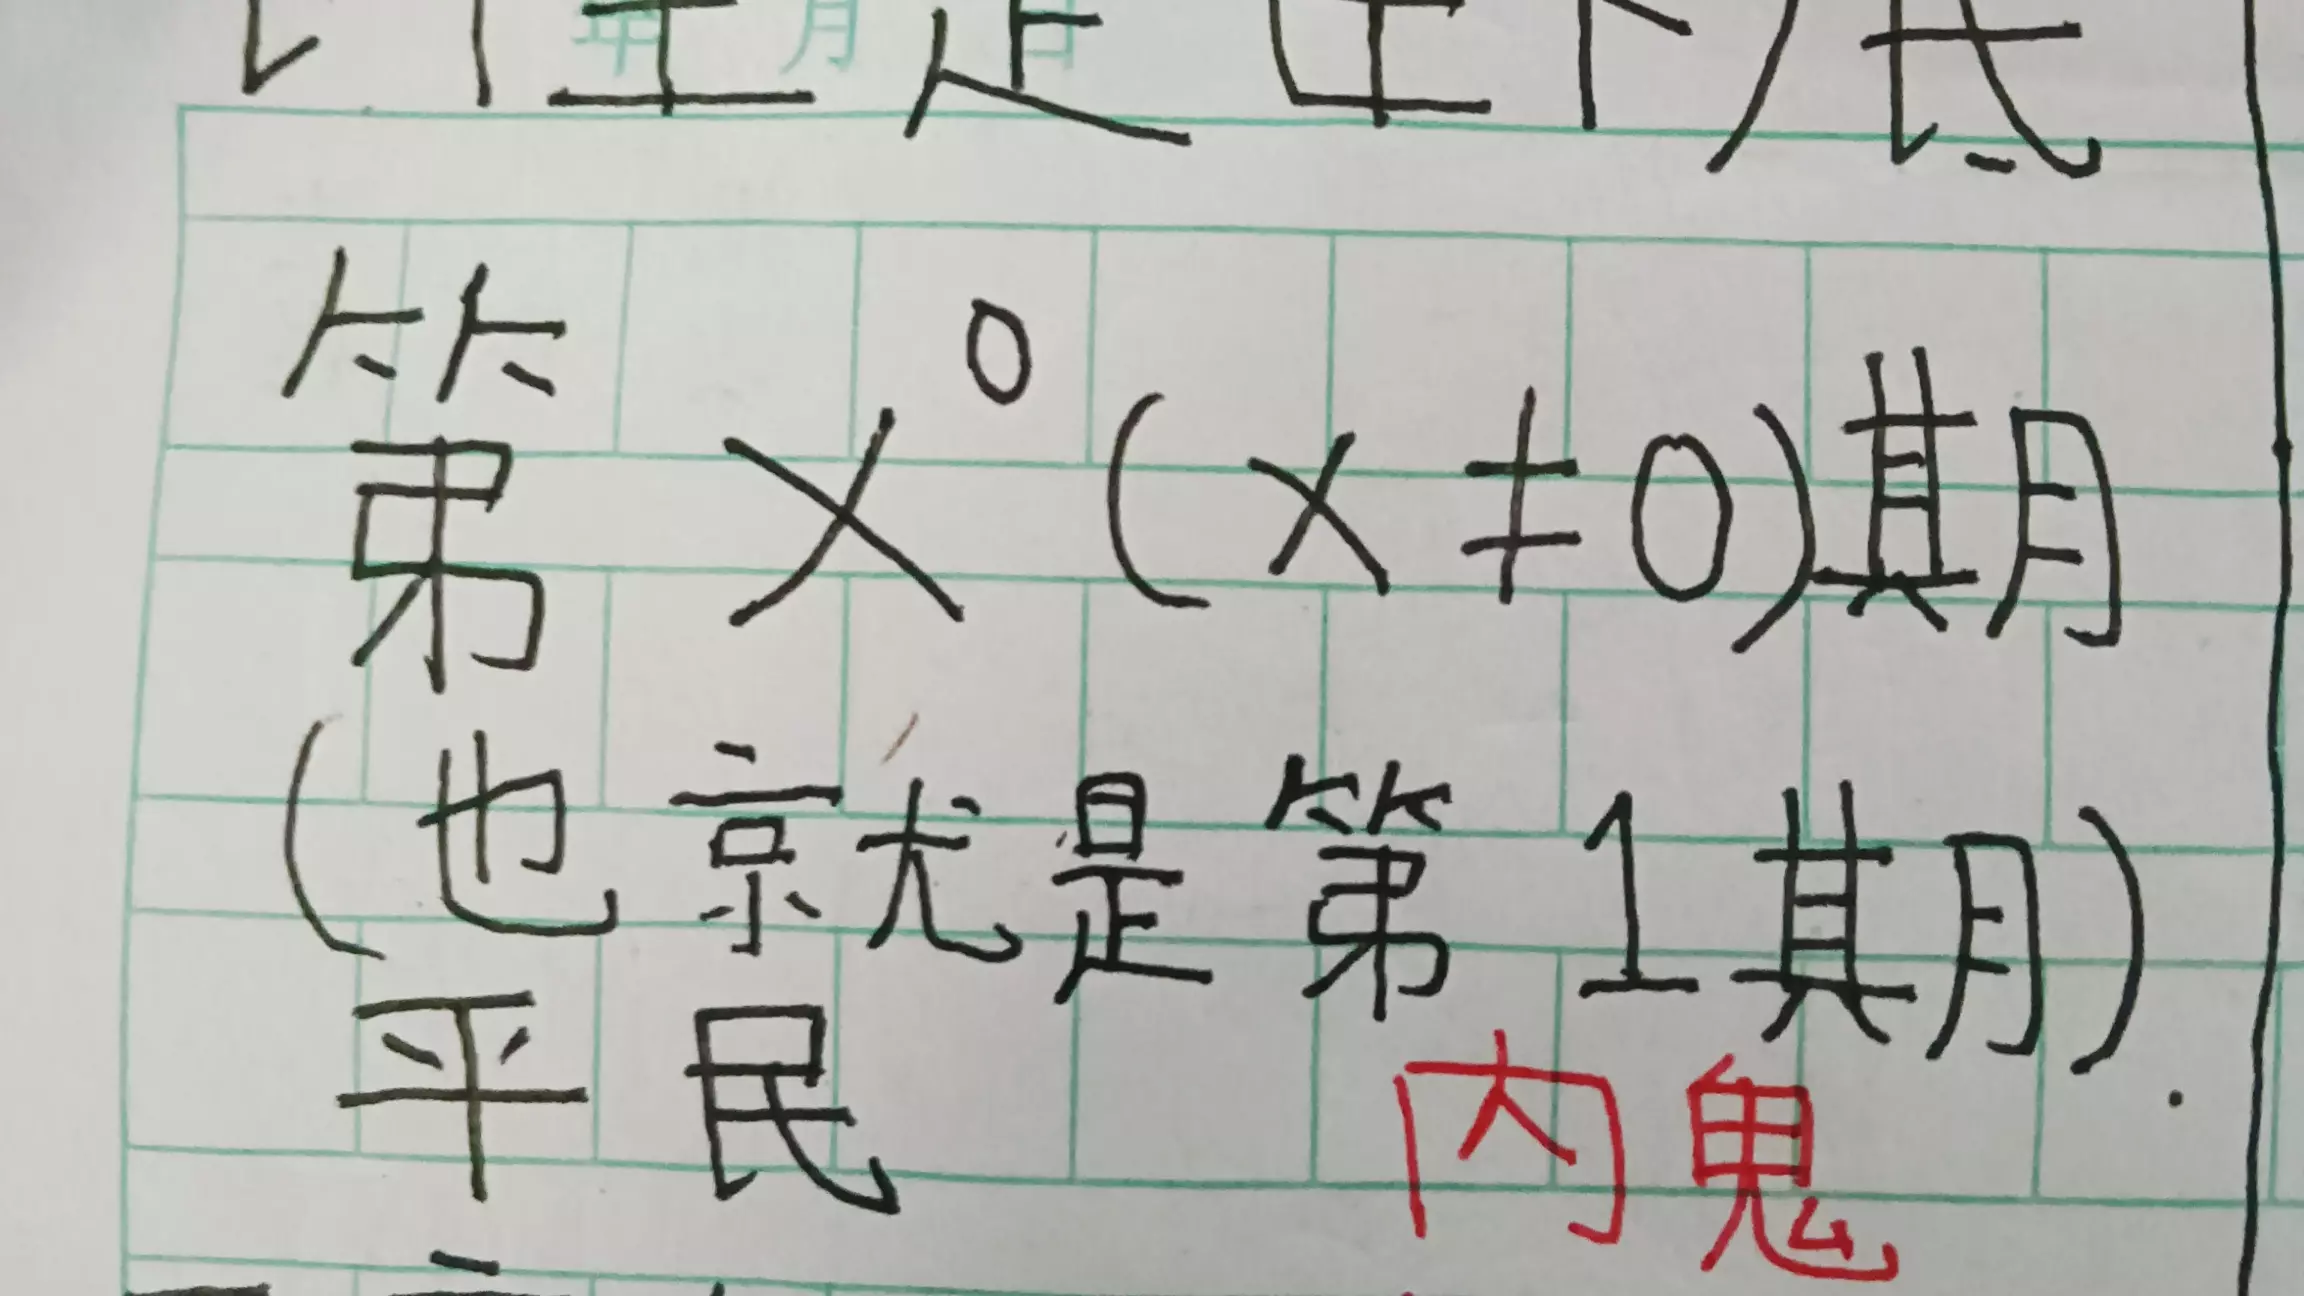 年 月 日
第 x⁰ (x≠0)期
(也就是第1期)
平民
内鬼